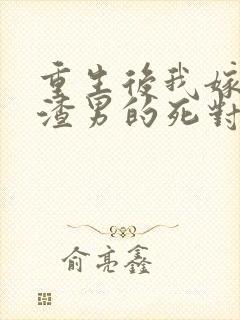 重生後我嫁
渣男的死對
俞亮鑫